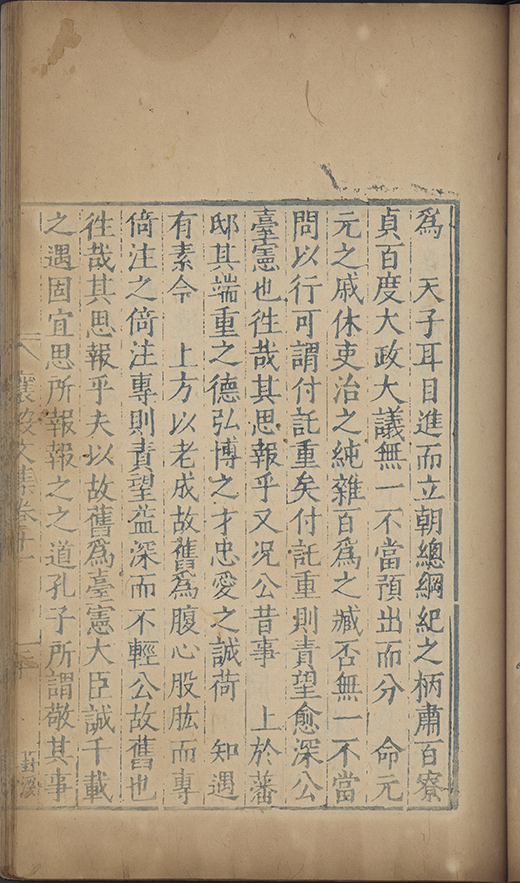 為　天子耳目進而立朝總綱紀之柄肅百寮
貞百度大政大議無一不當預出而分　命元
元之戚休吏治之純雜百為之臧否無一不當
問以行可謂付託重矣付託重則責望愈深公
臺憲也徃哉其思報乎又况公昔事　上於藩
邸其端重之德弘博之才忠愛之誠荷　知遇
有素今　上方以老成故舊為腹心股肱而專
倚注之倚注專則責望益深而不輕公故舊也
徃哉其思報乎夫以故舊為臺憲大臣誠千載
之遇固宜思所報報之之道孔子所謂敬其事
襄毅文集卷十一